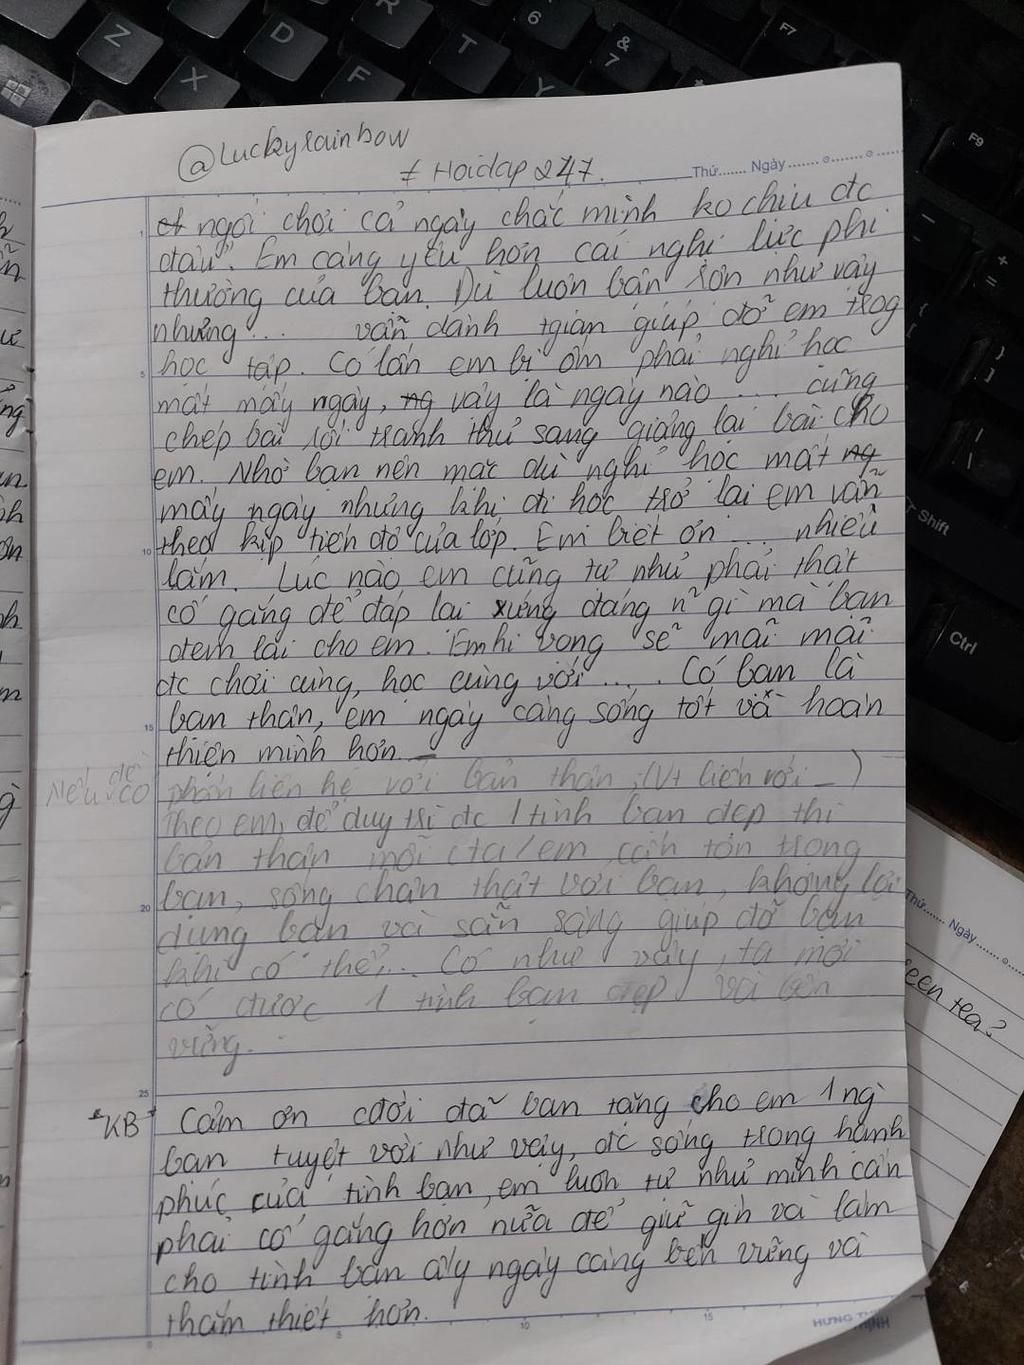 @Luckyrainbow
# Hoidap247.
Thứ....... Ngày.......
ngồi chơi cả ngày chắc mình ko chịu đc
đâu". Em càng yêu hơn cái nghị lực phi
thường của bạn. Dù luôn bận rộn như vậy
nhưng... vẫn dành tgian giúp đỡ em trog
học tập. Có lần em bị ốm phải nghỉ học
mất mấy ngày, vậy là ngày nào ... cũng
chép bài rồi tranh thủ sang giảng lại bài cho
em. Nhờ bạn nên mặc dù nghỉ học mất
mấy ngày nhưng khi đi học trở lại em vẫn
theo kịp tiến độ của lớp. Em biết ơn ... nhiều
lắm. Lúc nào em cũng tự nhủ phải thật
cố gắng để đáp lại xứng đáng n~ gì mà bạn
đem lại cho em. Em hi vọng sẽ mãi mãi
đc chơi cùng, học cùng với .... Có bạn là
bạn thân, em ngày càng sống tốt và hoàn
thiện mình hơn
Nếu đề có phần liên hệ với bản thân ;(Vt liền với _ )
Theo em, để duy trì đc 1 tình bạn đẹp thì
bản thân mỗi cta/em cần tôn trọng
bạn, sống chân thật với bạn, không lợi
dụng bạn và sẵn sàng giúp đỡ bạn
khi có thể... Có như vậy, ta mới
có được 1 tình bạn đẹp và bền
vững.
*KB* Cảm ơn cđời đã ban tặng cho em 1 ng
bạn tuyệt vời như vậy, đc sống trong hạnh
phúc của tình bạn, em luôn tự nhủ mình cần
phải cố gắng hơn nữa để giữ gìn và làm
cho tình bạn ấy ngày càng bền vững và
thắm thiết hơn.
Thứ....... Ngày.......
een tea?